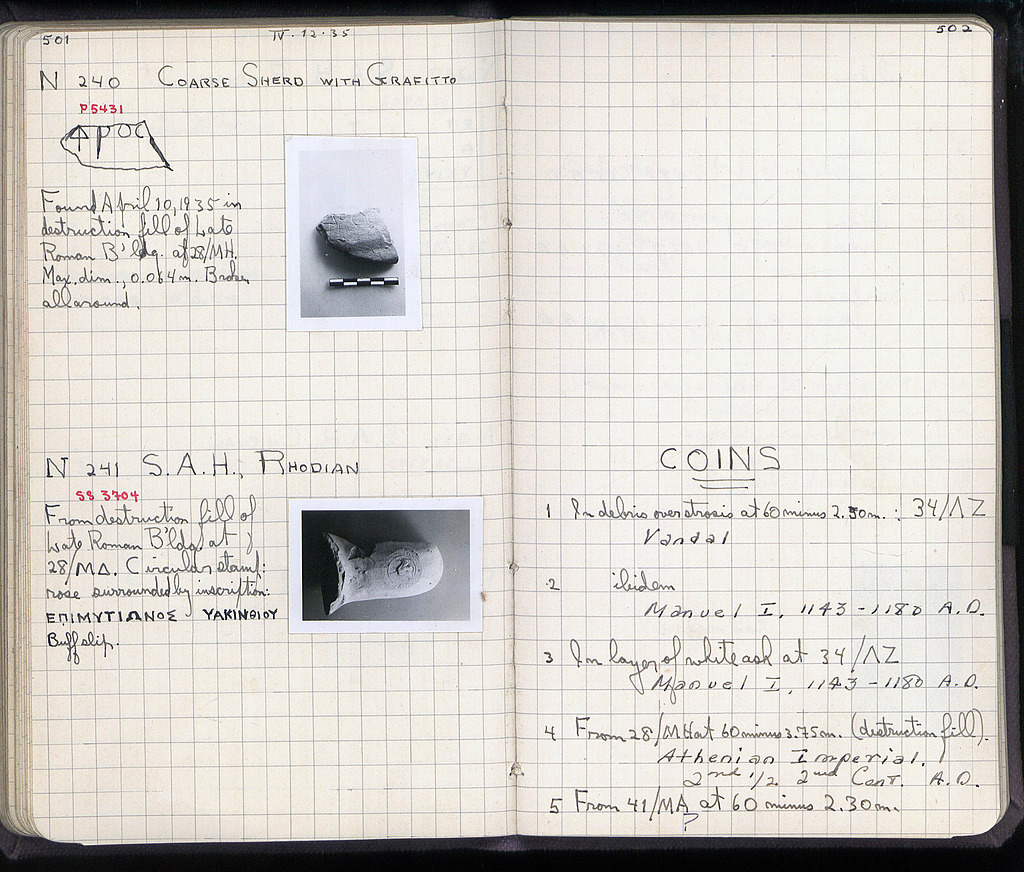 501
IV·12·35
N 240 COARSE SHERD WITH GRAFITTO
P5431
ΑΡΟC
Found April 10, 1935 in
destruction fill of Late
Roman B'ldg. at 28/ΜΗ.
Max. dim., 0.064 m. Broken
all around.
N 241 S.A.H., RHODIAN
SS 3704
From destruction fill of
Late Roman B'ldg. at
28/ΜΔ. Circular stamp:
rose surrounded by inscription:
ΕΠΙΜΥΤΙΩΝΟΣ ΥΑΚΙΝΘΙΟΥ
Buff slip.
502
COINS
1 In debris over strosis at 60 minus 2.50 m. : 34/ΛΖ
Vandal
2 ibidem
Manuel I, 1143-1180 A.D.
3 In layer of white ash at 34/ΛΖ
Manuel I, 1143-1180 A.D.
4 From 28/ΜΗ at 60 minus 3.75 m. (destruction fill).
Athenian Imperial.
2nd 1/2 2nd Cent. A.D.
5 From 41/ΜΑ at 60 minus 2.30 m.
?